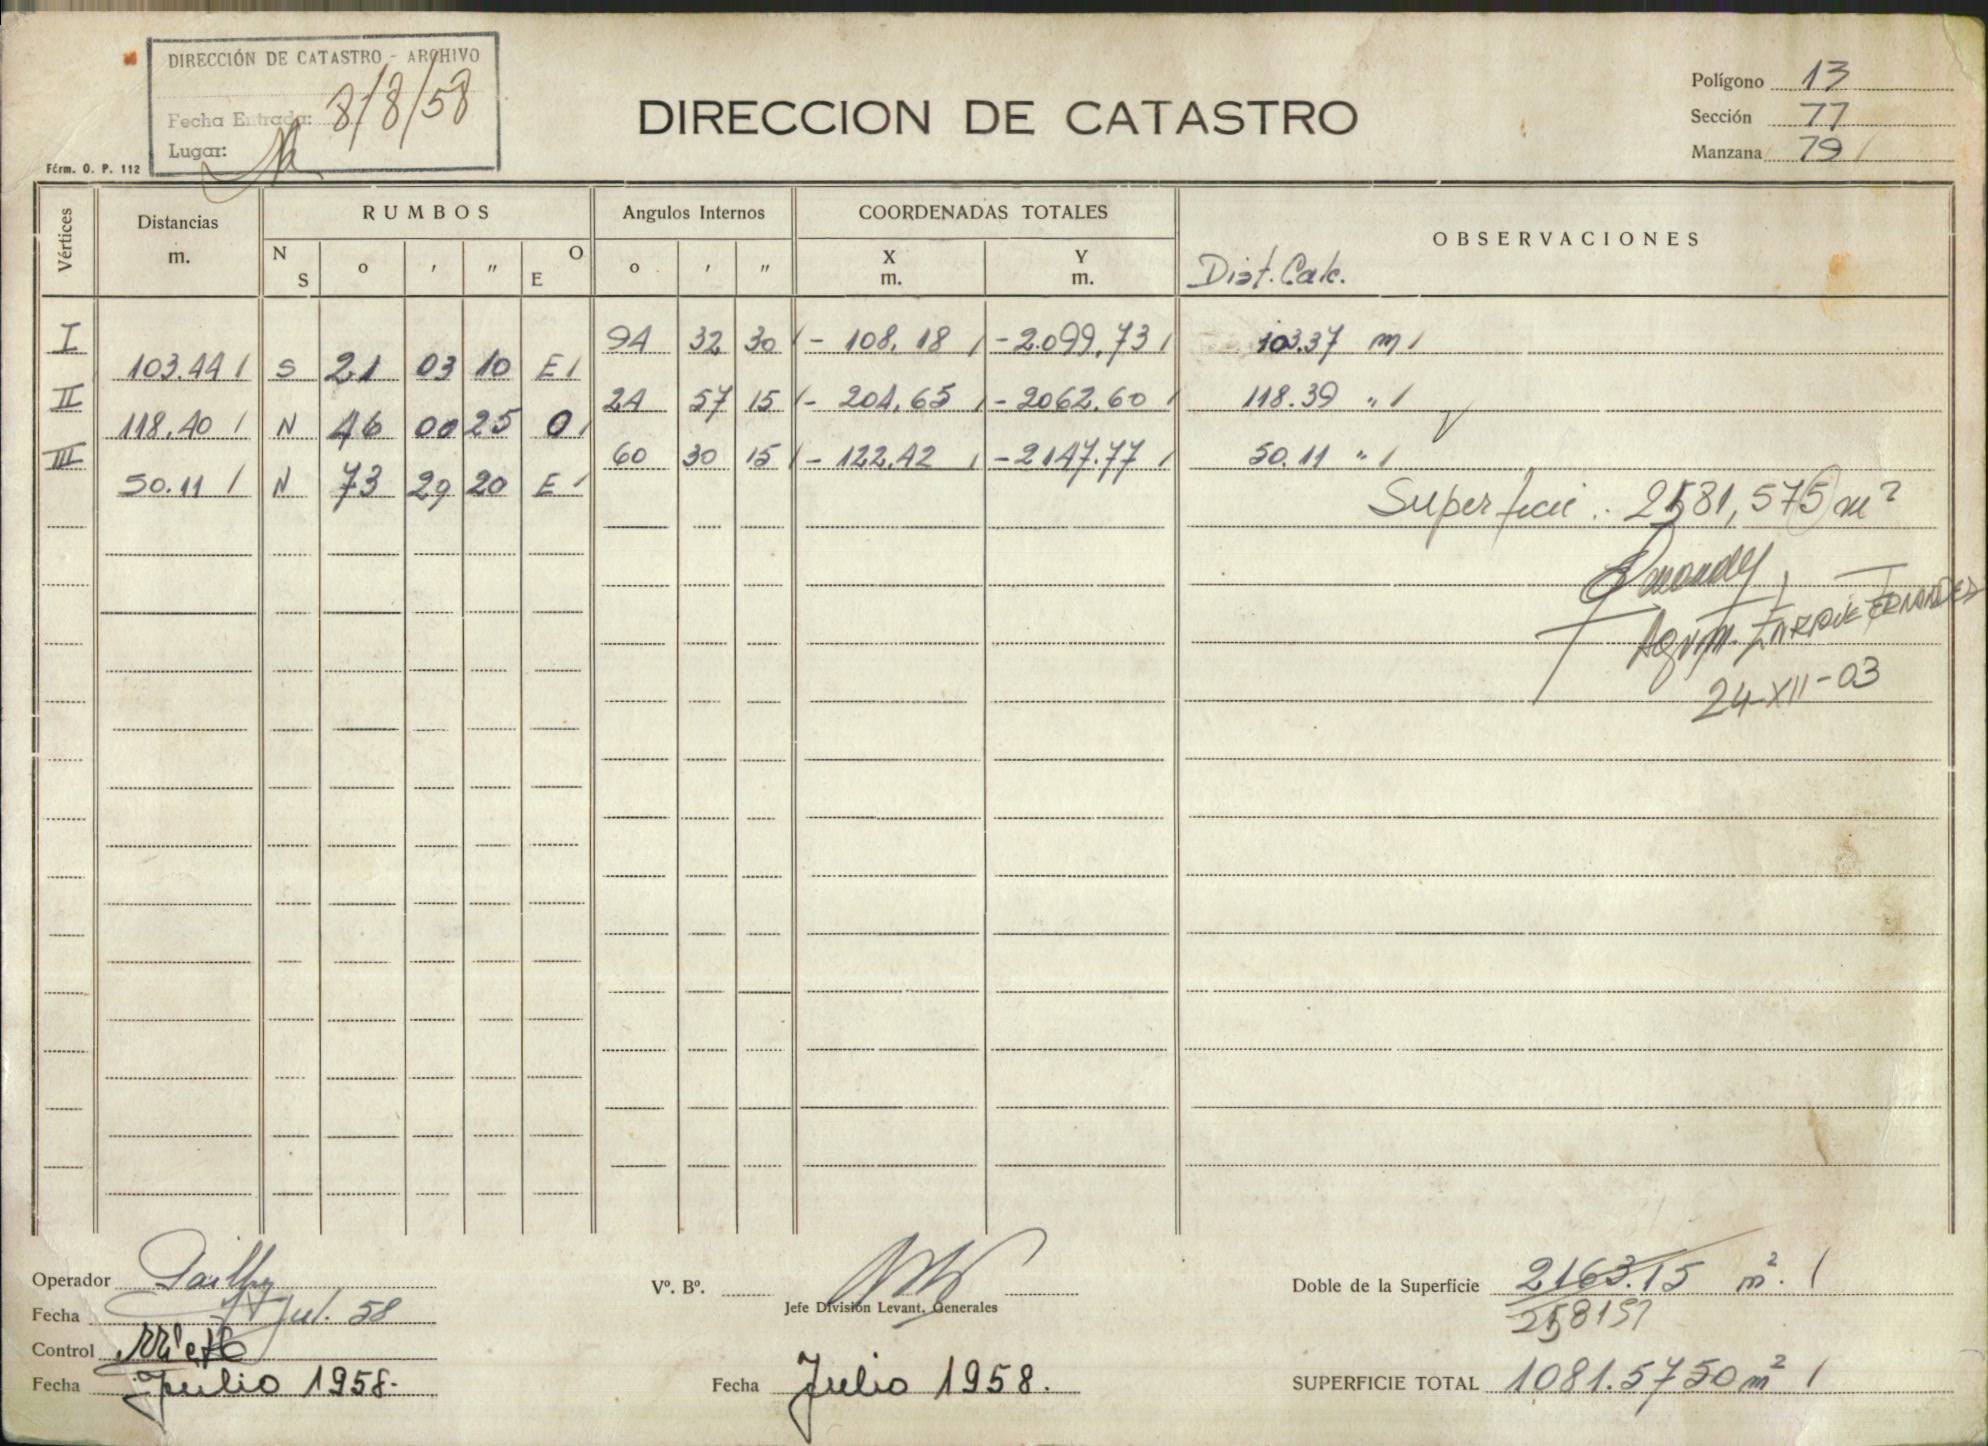 DIRECCIÓN DE CATASTRO - ARCHIVO
Fecha Entrada: 8/8/58
Lugar:
Fórm. O. P. 112
DIRECCION DE CATASTRO
Polígono 13
Sección 77
Manzana 79
Vértices
Distancias m.
RUMBOS
N S o ' " O E
Angulos Internos
o ' "
COORDENADAS TOTALES
X m. Y m.
OBSERVACIONES
Dist. Calc.
I 94 32 30 - 108,18 - 2.099,73 103.37 m
103.44 S 21 03 10 E
II 24 57 15 - 204,65 - 2062.60 118.39 "
118.40 N 46 00 25 O
III 60 30 15 - 122,42 - 2147.77 50.11 "
50.11 N 73 29 20 E
Superficie: 2581,575 m²
Agrim. ENRIQUE FERNANDEZ
24-XII-03
Operador
Fecha Jul. 58
Control
Fecha Julio 1958.
Vº. Bº.
Jefe División Levant. Generales
Fecha Julio 1958.
Doble de la Superficie 2163.15 m².
SUPERFICIE TOTAL 1081.5750 m²